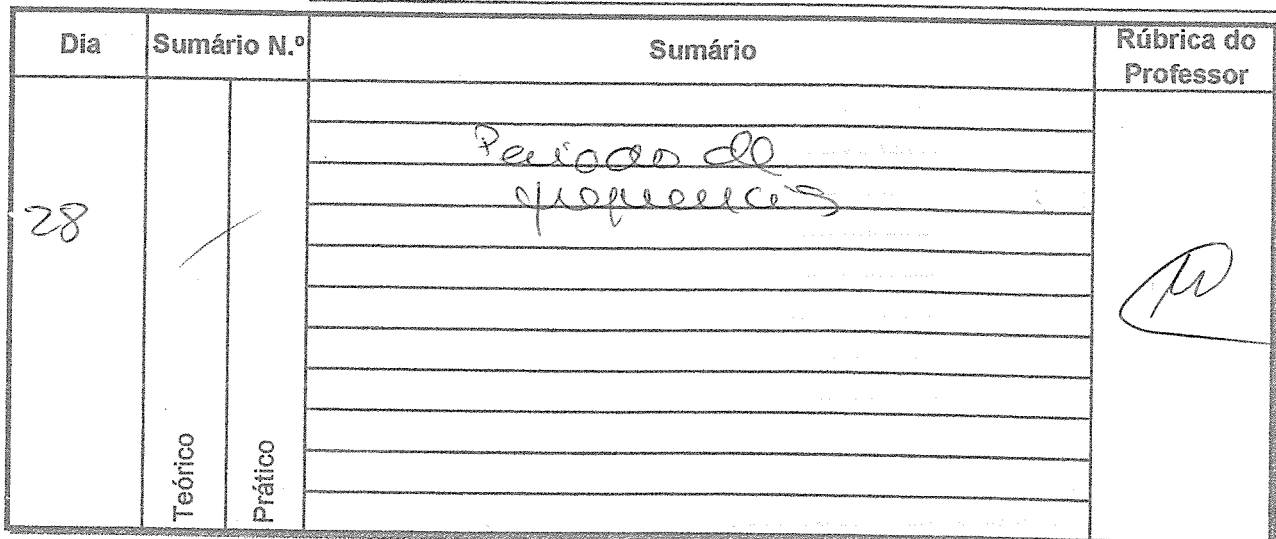 Dia
Sumário N.º
Sumário
Rúbrica do
Professor
28
Teórico
Prático
Periodo de
frequencias